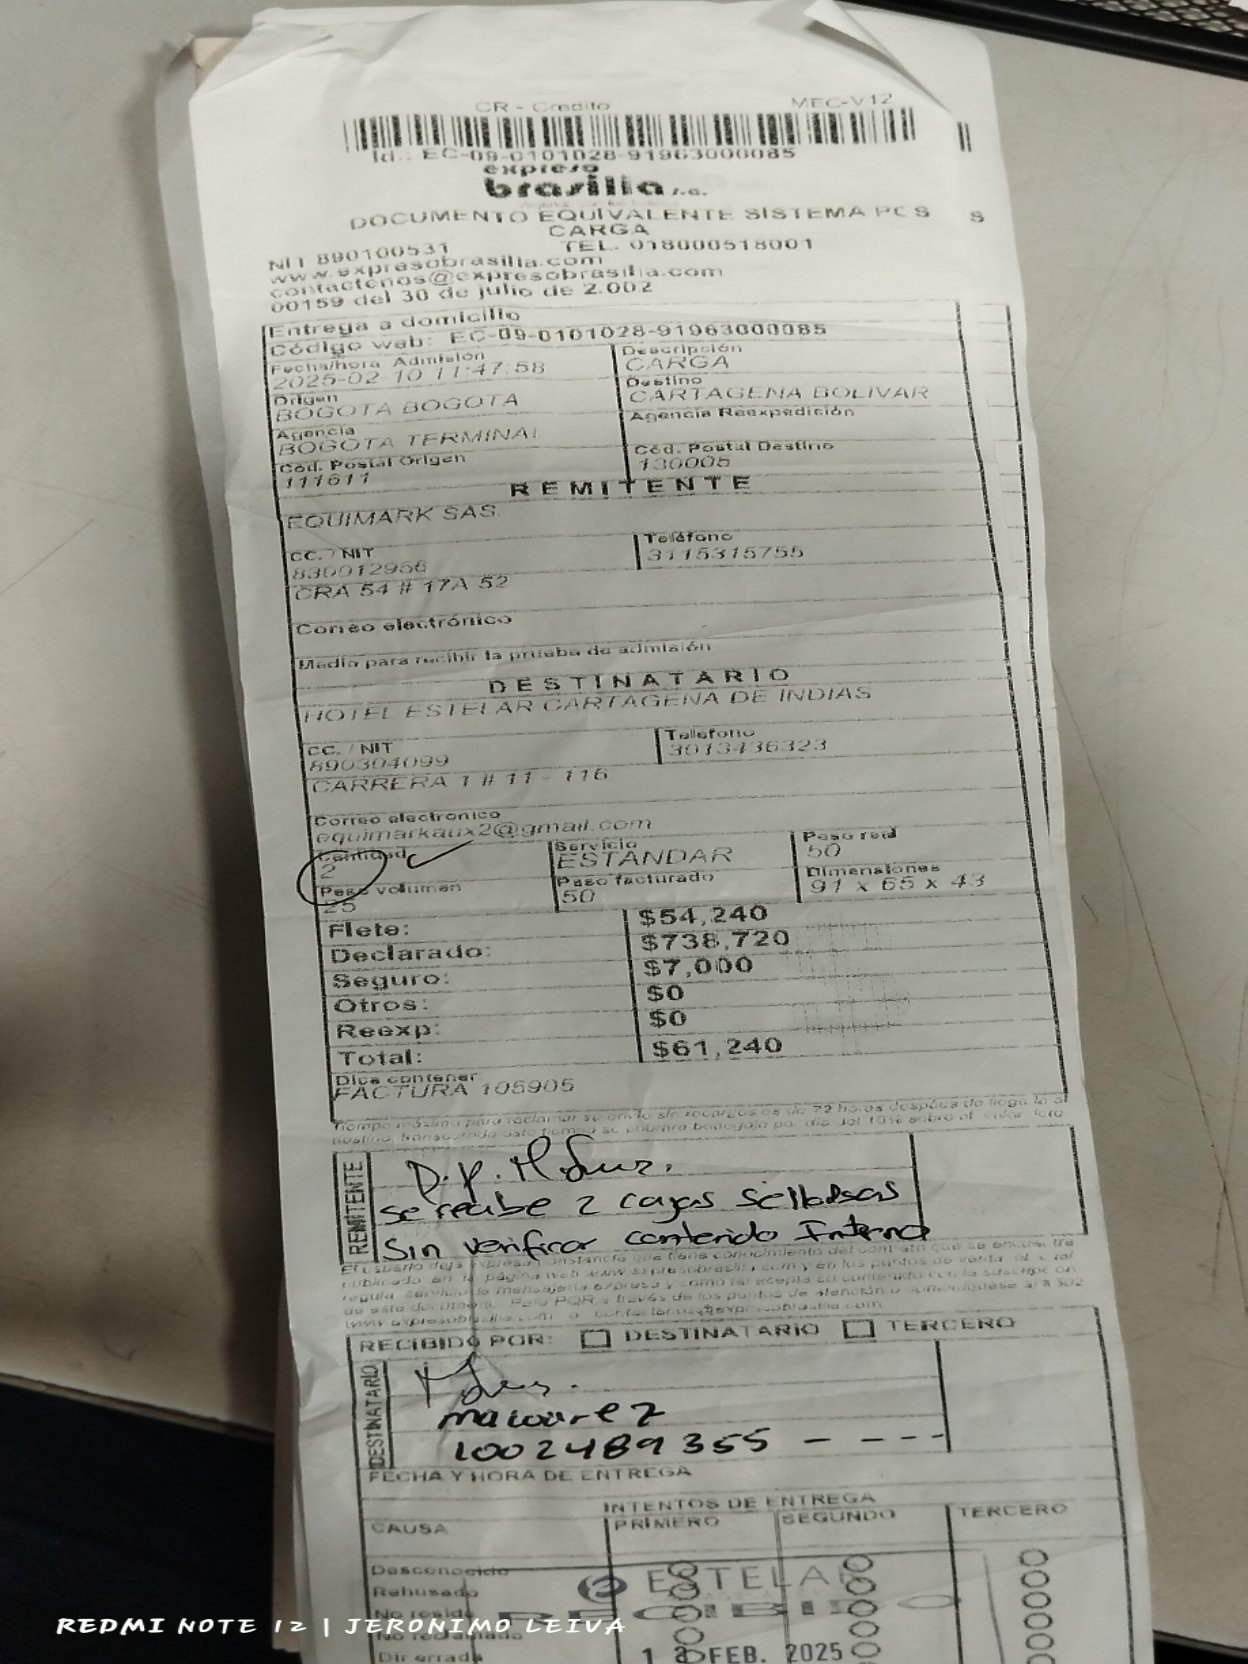 CR - Credito MEC-V12
Id.: EC-09-0101028-91963000085
expreso
brasilia s.a.
DOCUMENTO EQUIVALENTE SISTEMA POS S
CARGA
NIT 890100531 TEL. 018000518001
www.expresobrasilia.com
contactenos@expresobrasilia.com
00159 del 30 de julio de 2.002
Entrega a domicilio
Código web: EC-09-0101028-91963000085
Fecha/hora Admisión Descripción
2025-02 10 11:47:58 CARGA
Origen Destino
BOGOTA BOGOTA CARTAGENA BOLIVAR
Agencia Agencia Reexpedición
BOGOTA TERMINAL
Cód. Postal Origen Cód. Postal Destino
111611 130005
REMITENTE
EQUIMARK SAS.
CC. / NIT Teléfono
830012956 3115315755
CRA 54 # 17A 52
Correo electrónico
Medio para recibir la prueba de admisión
DESTINATARIO
HOTEL ESTELAR CARTAGENA DE INDIAS
CC. / NIT Telefono
890304099 3013436323
CARRERA 1 # 11 - 116
Correo electronico
equimarkaux2@gmail.com
Cantidad Servicio Peso real
2 ESTANDAR 50
Peso volumen Peso facturado Dimensiones
25 50 91 x 65 x 43
Flete: $54,240
Declarado: $738,720
Seguro: $7,000
Otros: $0
Reexp: $0
Total: $61,240
Dice contener
FACTURA 105905
Tiempo máximo para reclamar su envío sin recargos es de 72 horas después de llegada al
REMITENTE
se recibe 2 cajas selladas
sin verificar contenido Interno
El usuario deja expresa constancia que tiene conocimiento del contrato que se encuentra
publicado en la página web www.expresobrasilia.com y en los puntos de venta, el cual
regula servicio de mensajería expresa y
de este documento. Para PQR a través de los puntos de atención o
RECIBIDO POR: DESTINATARIO TERCERO
DESTINATARIO
1002489355 - - - -
FECHA Y HORA DE ENTREGA
INTENTOS DE ENTREGA
CAUSA PRIMERO SEGUNDO TERCERO
Desconocido
Rehusado
No reside
No reclamado
Dir errada
ESTELAR
RECIBIDO
FEB. 2025
REDMI NOTE 12 | JERONIMO LEIVA